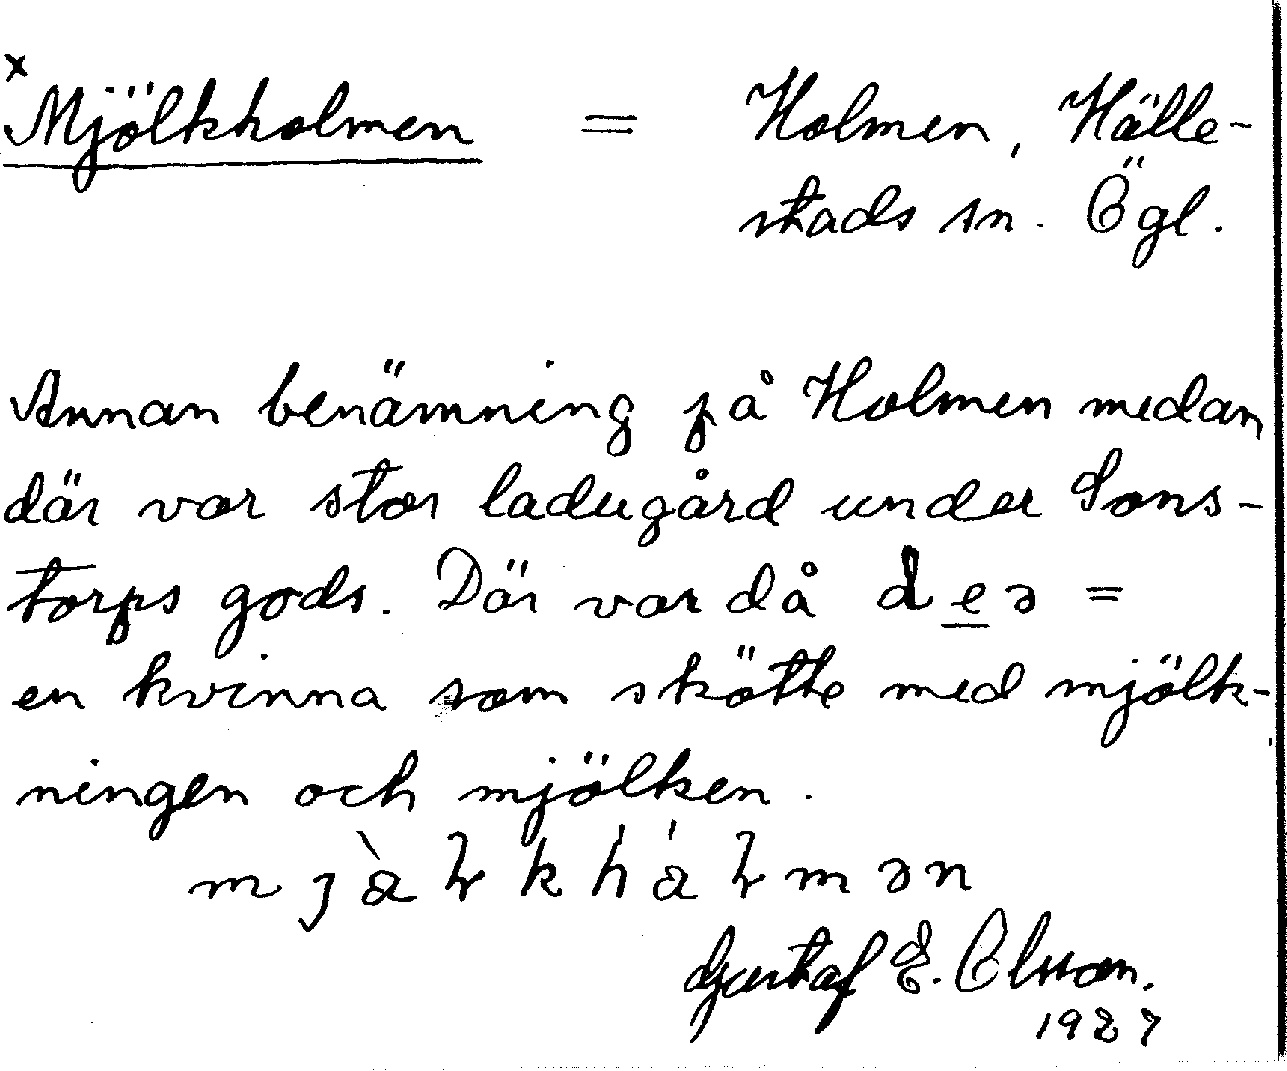 x
Mjölkholmen = Holmen, Hälle-
stads sn. Ögl.
Annan benämning på Holmen medan
där var stor ladugård under Sons-
torps gods. Där var då deə =
en kvinna som skötte med mjölk-
ningen och mjölken.
Gustaf E. Olsson.
1927